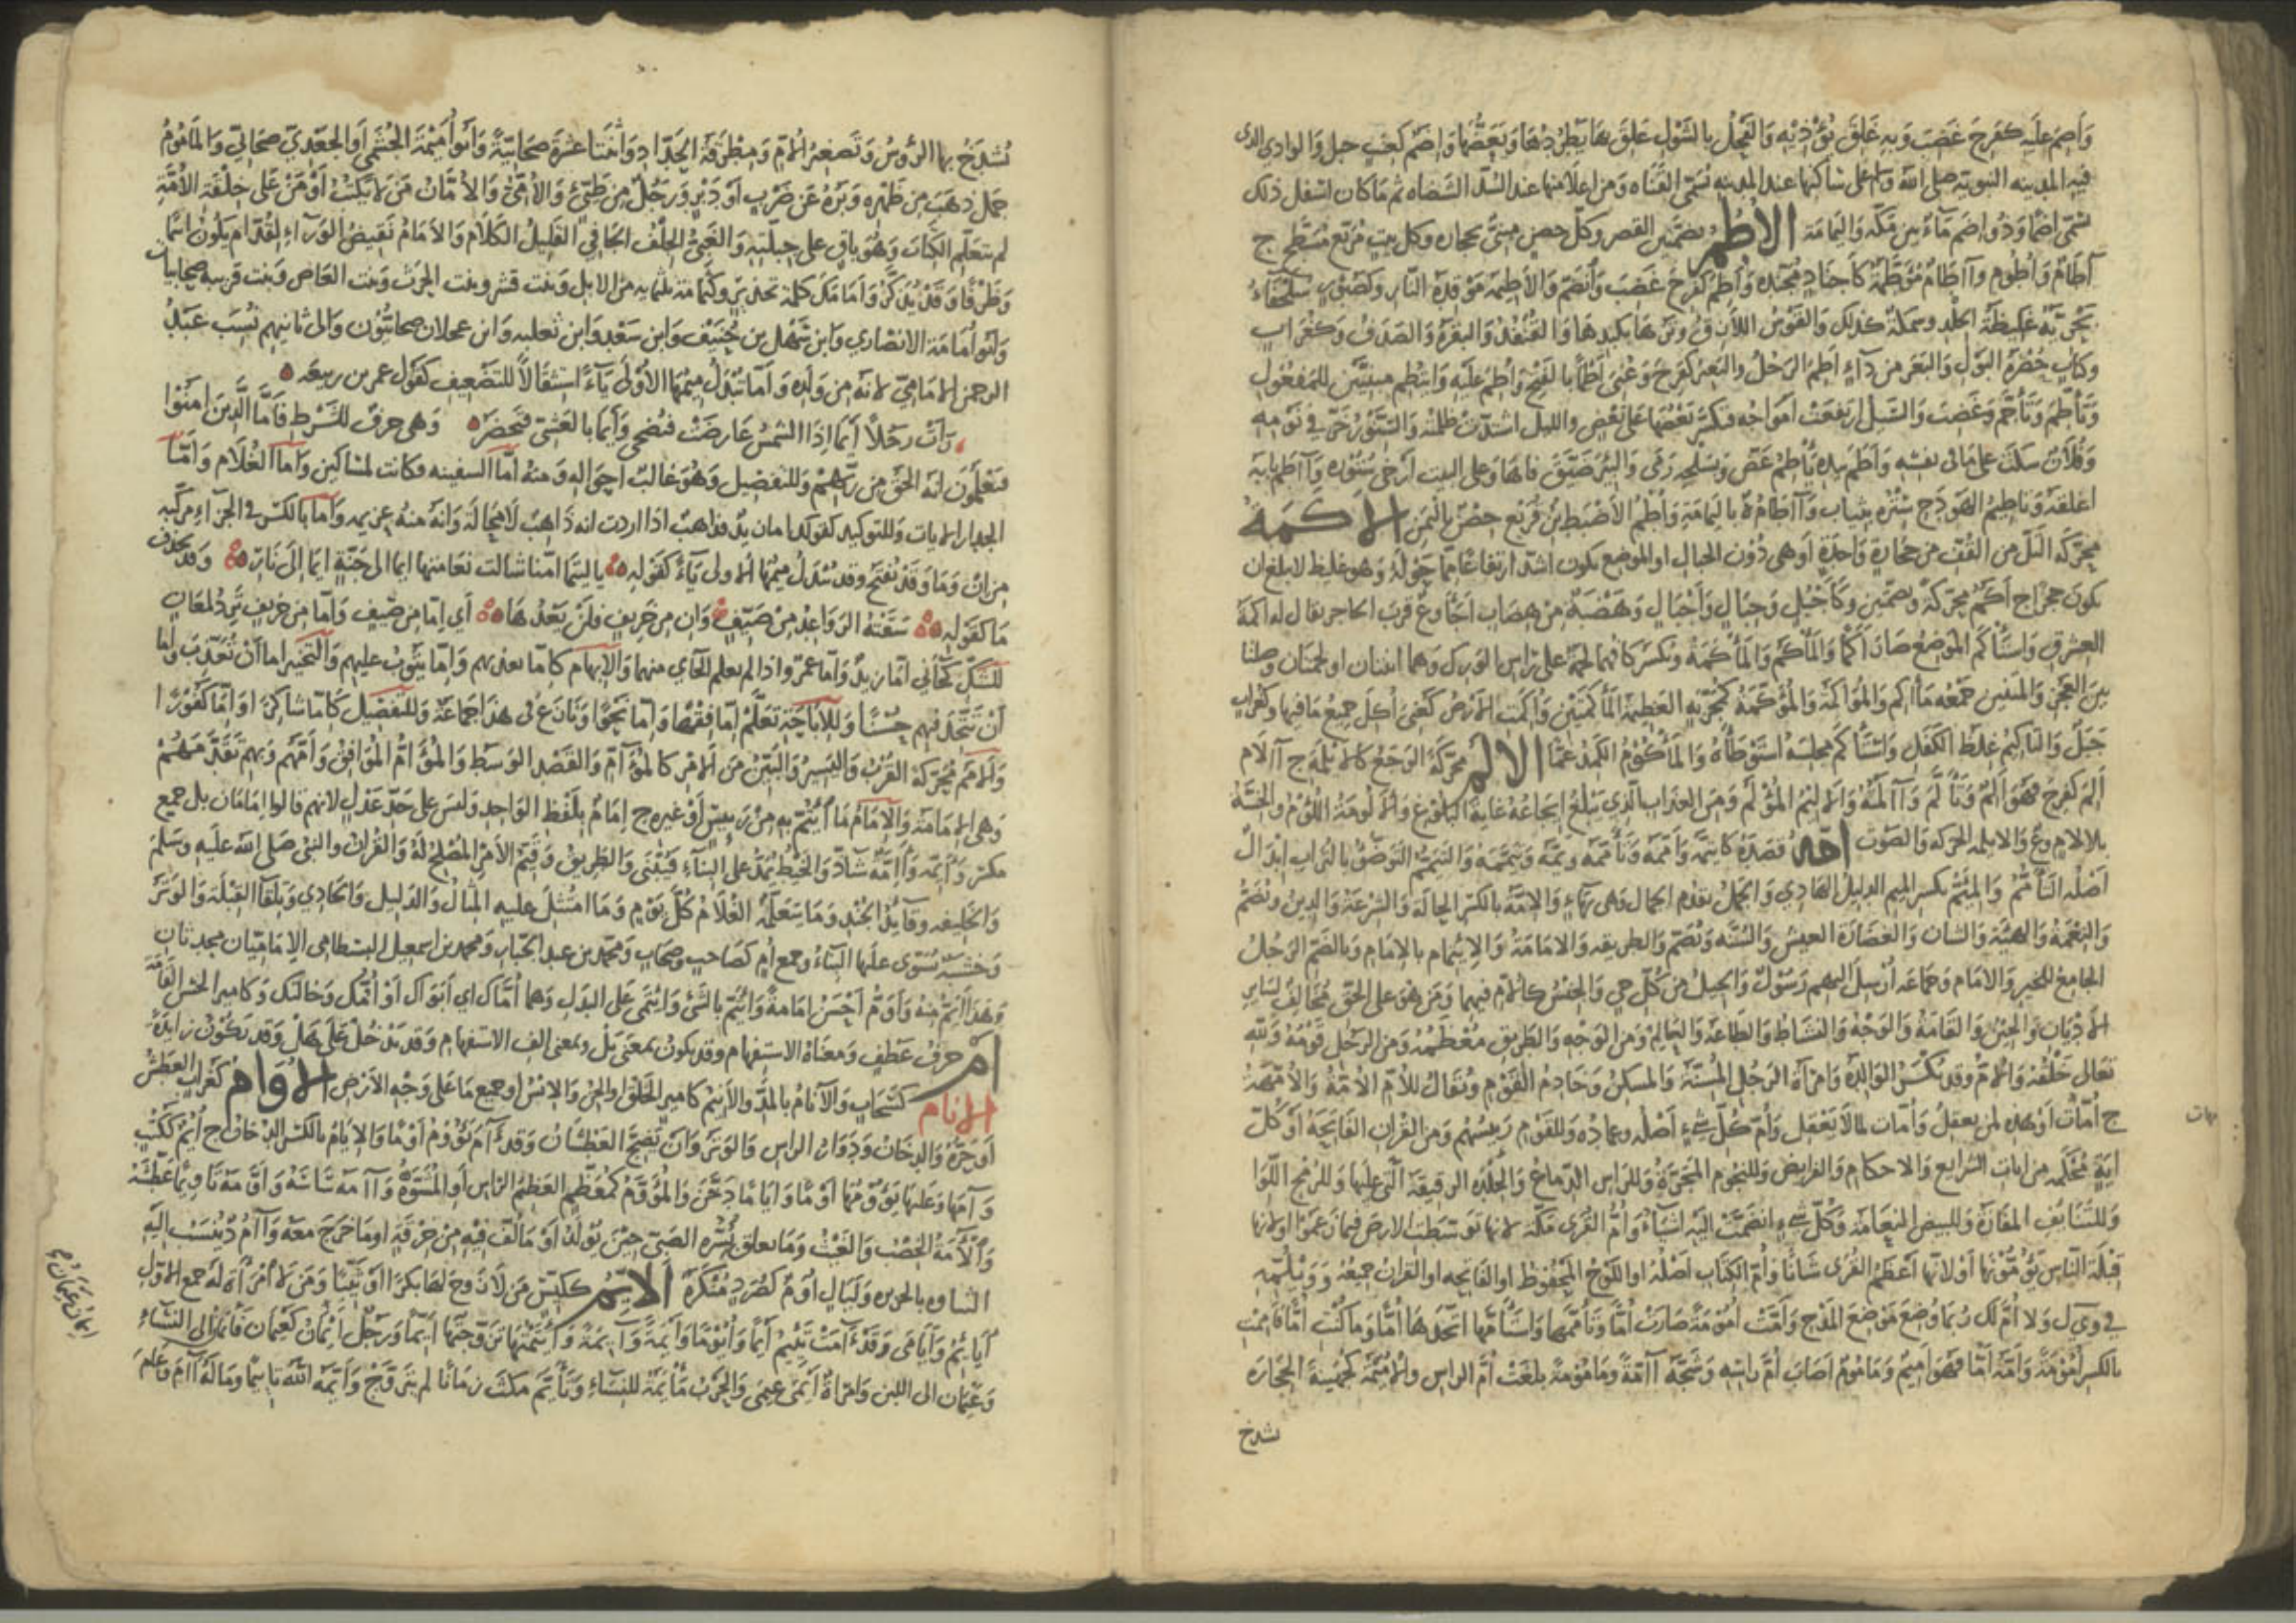 وَأَضِمَ عليه كفَرِحَ غَضِبَ وَبهِ عَلِقَ يُؤْذِيْهِ وَالفَحْلُ بالشَّوْلِ عَلِقَ بهَا يَطرُدُهَا وَيَعَضُّهَا وَإِضَمٌ كعِنَبٍ جبل وَالوادى الذى
فيه المدينه النبويه صلى الله وسلم على ساكنها عند المدينه تُسَمّى القَنَاه وَمن اعلا منها عند السُّدّ الشظاه ثم مَا كان اسفل ذلك
تسمّى اضَمًا وَذُو إضَمٍ مَآءٌ بين مَكّه وَاليَمامَة الأُطُمُ بضمّتين القصر وَكلّ حصن مبنىّ بحجاره وَكل بيتٍ مُرَبّع مُسَطّحٍ ج
آطَامٌ وَأُطُوم وَآطَامٌ مُؤَطَّمَةٌ كأجنادٍ مُجَنّده وَأَطِمَ كفَرِحَ غَضِبَ وَانضَمَّ وَالأَطِيْمَة مَوْقِدَةُ النّار وَكصَبُورٍ سُلَحْفَاةٌ
بَحْرِيّة غليظة الجلد وسمكة كذلك وَالقَوْسُ اللازِقُ وَتَرُهَا بكبدهَا وَالقُنْفُذُ وَالبقرة وَالصَدَفُ وَكغُرَابٍ
وكتاب حُصْرَة البَوْل وَالبَعَر من دَآءٍ أَطِمَ الرّجُلُ والبَعير كفَرِحَ وَعُنِىَ أَطْمًا بالفتح وَأُطِمَ عليه وَائتُطِمَ مبنيّتين للمفعُول
وَتأَطّمَ وَتأَجّمَ وَغضِبَ وَالسَّيْلُ ارتفعَتْ امواجُه فتكسّر بَعْضُهَا على بَعْض والليل اشتدّت ظلمته وَالسّنَّوْرُ خَرّ فى نَوْمِه
وَفُلَانٌ سكَتَ على مَا فى نفسِه وَأَطَمَ بيده يَأْطِمُ عَضّ وَبِسَلْحِه رَمى وَالبِئر ضَيّقَ فاهَا وَعلى البيت أَرخى سُتُوره وَآطَمَ بابَهُ
اغلقَهُ وَتأطيم الهَوْدَج سَتْرُه بثياب وَآطَامُهُ باليَمامَة وَأُطُم الأَضْبَط بن قُرَيْع حِصْن باليَمَن الأَكَمَةُ
محرّكه التلّ من القُفِّ من حجارة وَاحدة أَوهى دُوْنَ الجبال او الموضع يكون اشدّ ارتفاعًا مِمّا حَوْله وَهو غليظ لا يبلغ ان
يكون حجرا ج أَكَمٌ محرّكة وبضمّتين وَكأَجْبُلٍ وَجِبَالٍ وَأَجْبَالٍ وَهَضْبَةٌ من هضاب أَجَأٍ وع قربَ الحاجر يقال له اكمَة
العِشْرِق وَاسْتَأْكَمَ الموضعُ صَارَ أَكَمًا وَالمَأْكَمُ وَالمَأْكَمَةُ وتكسر كافُهما لحمَةٌ على رَأس الوَرِكِ وَهما اثنتان او لحمتان وصلتا
بينَ العَجُز وَالمتنين جَمْعُه مَآكم وَالمُؤَاكَمَةُ وَالمُؤَكَّمَةُ كمُحْرَنّبِهِ العظيمة المَأكَمَيْنِ وَأُكِمَتِ الأَرْضُ كعُنِيَ أُكِلَ جميعُ مَا فيها وكغُرَابٍ
جَبَلٌ وَالتّأكيمُ غِلَظُ الكَفَلِ وَاسْتَأْكَمَ مجلسَهُ استوْطأهُ وَالمَأْكُوْمُ الكَمِدُ غمّا الأَلَمُ محرّكة الوَجَعُ كالأَيْلَمَةِ ج آلَام
أَلِمَ كفَرِحَ فَهُوَ أَلِمٌ وَتَأَلَّمَ وَآلَمْتُهُ وَالأَلِيْمُ المُؤْلِمُ وَمن العَذَابِ الّذى يبْلُغ إيجاعُهُ غايَة البُلُوْغ وَالأَلُومَةُ اللّؤْمُ وَالخِسّةُ
بلالام ع وَالايلَمه الحركَه وَالصَوْت أَمَّهُ قَصَدَهُ كأتَمَّهُ وَأَمَّمَهُ وَتَأَمَّمَهُ وَيَمَّمَهُ وَتَيَمَّمَهُ وَالتَيَمُّمُ التَوَضُّؤُ بالتراب ابدَالٌ
أَصْلُه التَأَمُّمُ وَالمِئَمُّ بكسر الميم الدليلُ الهَادِي وَالجَمَلُ يقدُم الجمالَ وَهى بهآءٍ وَالإمّةُ بالكسر الحالَة وَالشِرْعَة وَالدّينُ وَتُضَمُّ
وَالنِعْمَةُ وَالهيئة وَالشأن وَالغَضَارَة العيش وَالسُّنّة وَتُضَمّ وَالطريقه وَالامَامَةُ وَالائتمام بالإمَام وَبالضّم الرَجُل
الجامعُ للخير وَالامَام وَجَماعَة أُرْسِلَ اليهم رَسُولٌ وَالجيلُ من كُلّ حيّ وَالجنسُ كالأُمّ فيهما وَمَن هو على الحَقّ مُخَالِفٌ لسَائرِ
الأَدْيَان وَالحِيْنُ وَالقَامَةُ وَالوَجْهُ وَالنَشَاطُ وَالطَاعَة وَالعالِمُ وَمن الوَجْهِ وَالطَريق مُعْظَمُهُ وَمن الرَجُل قَوْمُهُ وَللهِ
تعالى خَلْقُهُ وَالأُمُّ وَقد تُكْسَرُ الوَالِدَة وَامْرَأَةُ الرَجُل المُسِنَّةُ وَالمسكنُ وَخَادِمُ القَوْمِ وَيُقَالُ للأُمّ الأُمّةُ وَالأُمَّهَةُ
ج أُمّاتٌ أَوْ هذه لمن يعقلُ وَأُمّات لما لا يعْقِل وَأُمّ كُلّ شىءٍ أَصْلُه وعمادُه وَللقَوْمِ رَئيسُهُمْ وَمن القُرآن الفَاتِحَةُ أَوْ كُلّ
آيَةٍ مُحْكَمَه من ايات الشرايع وَالاحكام وَالفرائض وَللنجوم المَجَرّةُ وَللرأس الدّمَاغُ وَالجلْدَة الرقيقة الّتى عليها وَللرّمْح اللّوَا
وَللتَنَايف المفَازَة وَللبيض النعَامَة وَكُلّ شىءٍ انضمّتْ اليه اشيَآءُ وَأُمُّ القُرَى مَكّه لانها تَوَسّطت الارضَ فيما زَعَمُوْا او لانها
قبْلَةُ النّاسِ يَؤُمُّوْنَهَا أَوْ لانّهَا أعْظَمُ القُرَى شأنًا وَأُمّ الكتَاب أَصْلُهُ او اللَوْحُ المَحْفُوظ او الفاتحه او القرآنُ جَمِيْعُهُ وَوَيْلُمِّهِ
فى وَيْ ل وَلا أُمَّ لكَ رُبّمَا وُضِعَ مَوْضِعَ المَدْحِ وَأَمَّتْ أُمُوْمَةً صَارَتْ أُمًّا وَتَأَمَّمَهَا وَاسْتَأَمَّهَا اتخذَهَا أُمًّا وَمَا كُنْتِ أُمًّا فأَمِمْتِ
بالكسر أُمُوْمَةً وَأَمَّهُ أَمًّا فَهُوَ أَمِيْمٌ وَمَأمُوْمٌ أصَابَ أُمَّ رَأْسِهِ وَشَجَّةٌ آمَّةٌ وَمَأمُوْمَةٌ بلغَتْ أُمَّ الراس وَالأُمَيْمَة كجُهَيْنَة الحِجَارَة
تشدخ
هات
تُشْدَخُ بهَا الرؤُسُ وَتَصغيرُ الأُمّ وَمِطْرَقَةُ الحَدّادِ وَاثنَتَا عشرَةَ صَحَابيّةً وَأَبُو أُمَيْمَةَ الجُشَمِي أَوالجَعْدِيّ صَحَابيّ وَالمَأمُوْمُ
جَمَل ذهَبَ من ظَهْرِه وَبَرُهُ عَن ضَرْبٍ أَوْ دَبَرٍ وَرَجُلٌ مِن طَيّئٍ وَالأُمّىُّ وَالأُمّانُ مَن لا يَكْتُبُ أَوْ مَنْ على خِلْقَةِ الأُمّةِ
لم يتعَلّم الكِتَابَ وَهُوَ باقٍ على جِبِلّتِهِ وَالغَبِيُّ الجِلْفُ الجَافِي القَليلُ الكَلَام وَالأَمَامُ نَقِيْضُ الوَرَآءِ كقُدّام يَكُونُ اسْمًا
وَظَرْفًا وَقَدْ يُذكّرُ وَأَمَامَكَ كلمة تحذيرٍ وَكثُمامَة ثلثمايه من الابل وَبنت قشر وبنت الحرث وَبنت العاص وَبنت قريبه صحابيات
وَأَبُو أُمَامَة الانصَاري وَابن سَهْل بن حُنَيْف وَابن سَعْد وَابن ثعلبه وَابن عجلان صحابيُّون وَالى ثانيهم نُسِبَ عَبْدُ
الرحمن الأُمَامِيّ لانه من وَلَدِه وَأَمّا تُبْدَلُ مِيْمُهَا الأُوْلَى يَآءً اسْتِثقَالًا للتَضْعِيفِ كقَوْل عمر بن ربيعه
رَأَتْ رجُلًا أَيْمَا اذا الشمسُ عَارضَتْ فيَضْحى وَأَيْمَا بالعَشىّ فيَخْصَرُ وَهى حرفٌ للشّرْط فأَمّا الّذينَ امَنُوْا
فيَعْلَمُونَ أَنّهُ الحَقّ مِن رَبّهِمْ وَللتفصيل وَهُوَ غالبُ احوَاله وَمنهُ أَمّا السفينه فكانت لمساكين وَأَمّا الغُلَام وَأَمّا
الجدار الايات وَللتوكيد كقولك اما زيدٌ فذاهبٌ اذا اردت انه ذَاهِبٌ لَا مَحَالَة وَأَنّهُ منهُ عزيمه وَإِمّا بالكسْرِ فى الجزآءِ مركّبه
من إِنْ وَمَا وَقَدْ تُفْتَحُ وَقد تُبْدَلُ مِيْمُهَا الأُولى يَآءً كقَوْله يا ليتما أُمّنا شالت نعامتها ايما الى جَنّةٍ ايما إلَى نَارٍ وَقد تحذف
مَا كقَوْله سَقَتْهُ الرَوَاعِدُ مِنْ صَيّفٍ وَإِن مِن خَرِيفٍ فلَنْ يَعْدَمَا أَي إمّا من صَيّفٍ وَإِمّا من خَريفٍ تَرِدُ لمعَانٍ
للشّكّ كجاءَنى إمّا زيدٌ وَإِمّا عَمرٌو اذا لم يعلم الجَآئى منهما وَالإبْهَام كإمّا يعذبهم وَإِمّا يَتُوْبُ عَلَيهِم وَالتَخيير اما أَنْ تُعَذّبَ وَإِمّا
أَنْ تَتّخِذَ فيهِم حُسْنًا وَللإِبَاحَةِ تَعَلَّمْ إمّا فِقْهًا وَإِمّا نَحْوًا وَنَازَعَ فى هذا جَماعَة وَللتفصيل كإمّا شاكرًا وَإِمّا كَفُوْرًا
وَالأَمَمُ مُحرّكة القُرْبُ وَاليَسِيْرُ وَالبَيّنُ مِنَ الأَمْرِ كالمُؤَامّ وَالقَصْدُ الوَسَطُ وَالمُؤَامُّ المُوَافِقُ وَأَمَّهُمْ وَبهِمْ تَقَدّمَهُمْ
وَهى الإمَامَةُ وَالإمَامُ مَا ائْتُمّ بِهِ مِنْ رَئيسٍ أَوْ غيره ج إمَامٌ بلَفْظ الوَاحِدِ وَلَيْسَ على حَدّ عَدْلٍ لانهم قالوا إمَامَانِ بل جمع
مكسّر وَأَئِمّه وَأَيِمّة شَاذّ وَالخَيْطُ يُمَدّ على البِنَآءِ فيُبْنَى وَالطَرِيقُ وَقيّم الأَمْرِ المُصْلِحُ لَهُ وَالقُرْآنُ والنبىّ صَلّى اللهُ عَلَيهِ وسَلّم
وَالخليفه وقآئدُ الجُنْدِ وَمَا يَتَعَلّمُهُ الغُلَامُ كُلّ يَوْمٍ وَمَا امْتُثِلَ عليه المِثَالُ وَالدَلِيلُ وَالحَادِي وَتِلْقَآءُ القِبْلَةِ وَالوَتَرُ
وَخشبَةٌ يُسَوّى عَلَيهَا البِنَآءُ وَجمعُ آمٍّ كصَاحِبٍ وصِحَابٍ وَمحَمّد بن عبد الجبّار وَمحمد بن اسمعيل البسطامى الإمَامِيّان محدثان
وَهذا أَيَمُّ منهُ وَأَوَمُّ أَحْسَنُ إمَامَةً وَائْتَمّ بالشّئِ وَائْتَمَى عَلَى البَدَلِ وَهما أُمّاكَ اي أَبَوَاكَ أَوْ أُمُّكَ وَخَالَتُكَ وَكأميرٍ الحَسَنُ القَامَة
أَمْ حَرْفُ عَطْفٍ وَمَعْنَاهُ الاستفهام وقد يكون بمعْنَى بَلْ وبمعنى الف الاستفهام وَقد تَدْخُلُ عَلَى هَلْ وَقد تَكُوْنُ زَايدَةً
الأنام كسَحَابٍ وَالآنَامُ بالمَدّ وَالأَنِيْمُ كأمير الخَلْقُ او الجنّ وَالإنسُ او جميع مَا عَلى وَجْهِ الأَرضِ الأُوَام كغُرَاب العَطَشُ
أَوْ حَرُّهُ وَالدخَانُ وَدُوَارُ الراس وَالوَتَرُ وَأَنْ يَضِجّ العَطْشَانُ وَقد آمَ يَؤُوْمُ أَوْمًا وَالإيَامُ بالكسْر الدُخَانُ ج أُيُمٌ ككُتُب
وَآمَهَا وَعَلَيهَا يَؤُوْمُهَا أَوْمًا وَإِيَامًا دَخّنَ وَالمُؤَوَّمُ كمُعَظّم العَظيمُ الرّاس أَو المُشَوّهُ وَآمَهُ سَاسَهُ وَأَوَّمَهُ تَأوِيْمًا عَطّشَهُ
وَالآمَةُ الخِصْبُ وَالعَيْبُ وَمَا يعلق بسُرّه الصبيّ حِيْنَ يُولَدُ أَوْ مَا لُفّ فِيْهِ مِنْ خِرْقَةٍ او مَا خَرَجَ معَهُ وَآمٌ د يُنْسَبُ إليهِ
الثياب بالجزيره وَلَيَالٍ أُوَّمٌ كصُرَّدٍ مُنكَرَةٌ الأَيّمُ ككَيّسٍ مَن لَا زَوجَ لهَا بكرًا أَوْ ثَيّبًا وَمَن لا امْرَأَة لَهُ جمع الاوّل
أَيَايِمُ وَأَيَامى وَقَدْ آمَتْ تَئِيْمُ أَيْمًا وَأُيُوْمًا وَأَيْمَةً وَإِيْمَةً وَأَأَمْتُهَا تزَوّجتُهَا أَيّمًا وَرَجُلٌ أَيْمَانُ عَيْمَان فأَيْمَانُ الى النّسَآءِ
وَعَيْمَان الى اللبن وَامْرَأَةٌ أَيْمَى عَيْمَى وَالحَرْبُ مَأْيَمَةٌ للنسَآءِ وَتَأَيّمَ مكثَ زمَانًا لم يَتَزَوّجْ وَأَيّمَهُ اللهُ تأيِيْمًا وَمَالَهُ آمَ وَعَامَ